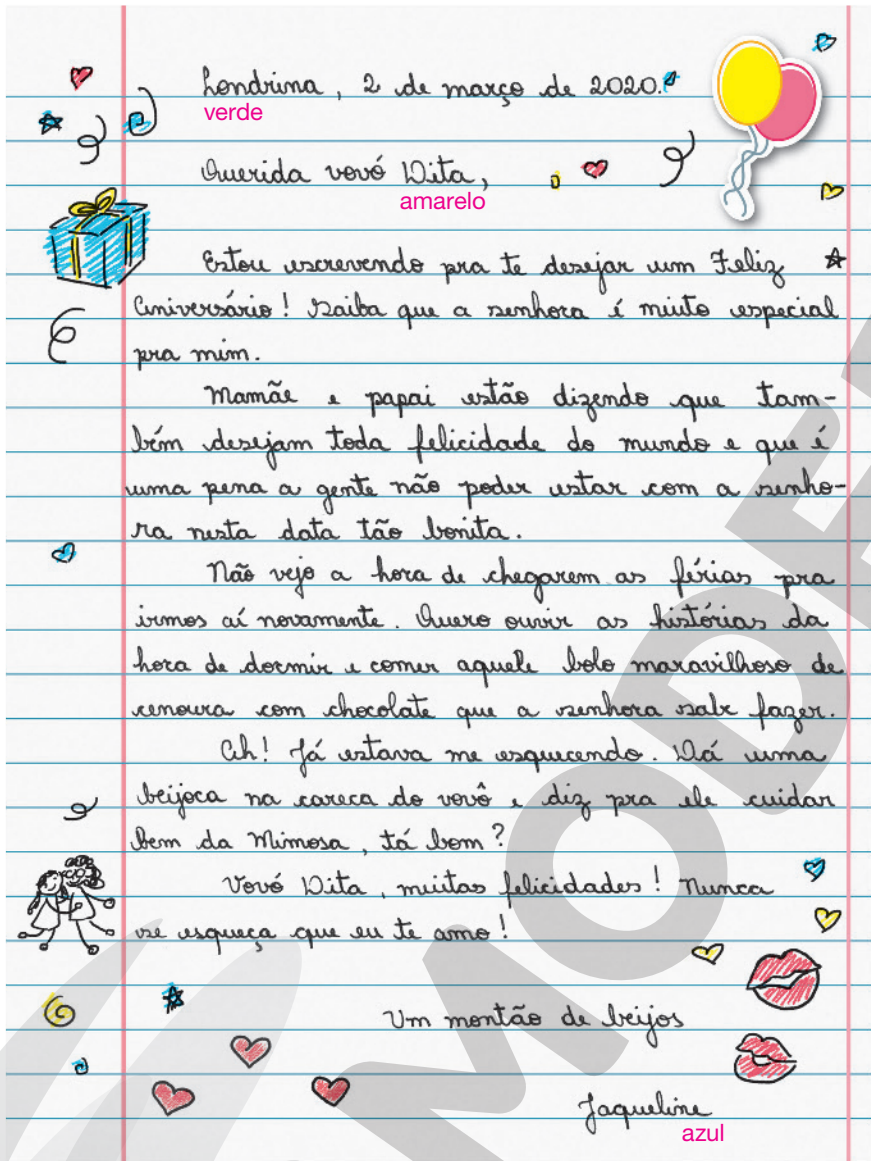 Londrina, 2 de março de 2020.
verde
Querida vovó Dita,
amarelo
Estou escrevendo pra te desejar um Feliz
Aniversário! Saiba que a senhora é muito especial
pra mim.
Mamãe e papai estão dizendo que tam-
bém desejam toda felicidade do mundo e que é
uma pena a gente não poder estar com a senho-
ra nesta data tão bonita.
Não vejo a hora de chegarem as férias pra
irmos aí novamente. Quero ouvir as histórias da
hora de dormir e comer aquele bolo maravilhoso de
cenoura com chocolate que a senhora sabe fazer.
Ah! Já estava me esquecendo. Dá uma
beijoca na careca do vovô e diz pra ele cuidar
bem da Mimosa, tá bom?
Vovó Dita, muitas felicidades! Nunca
se esqueça que eu te amo!
Um montão de beijos
Jaqueline
azul